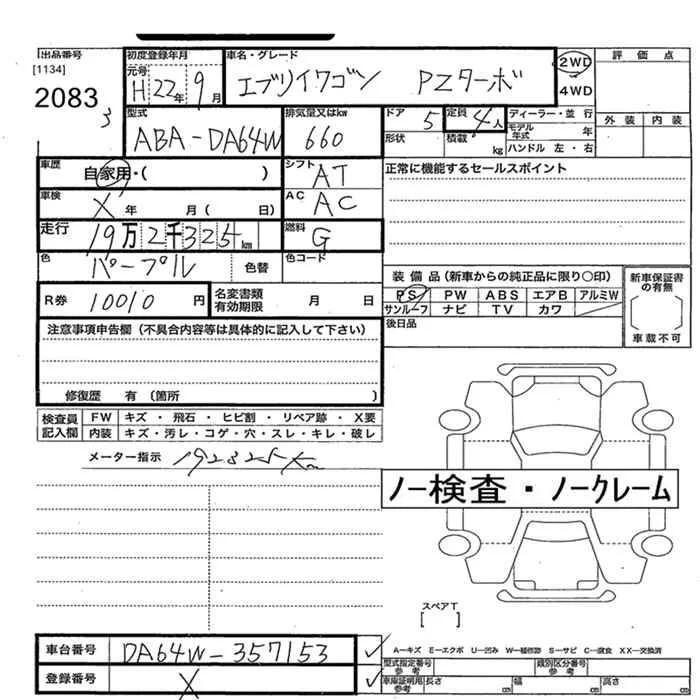 出品番号 初度登録年月 車名・グレード 2WD 評価点
[1134] 元号 H 22年 9月 エブリイワゴン PZターボ 4WD
2083 3
型式 排気量又はkw ドア 5 定員 4人 ディーラー・並行 外装 内装
ABA-DA64W 660 形状 積載 kg モデル年式 年
ハンドル 左・右
車歴 自家用・( ) シフト AT 正常に機能するセールスポイント
車検 X 年 月( 日) AC AC
走行 19万2千325km 燃料 G
色 パープル 色替 色コード 装備品(新車からの純正品に限り〇印) 新車保証書の有無
R券 10010円 名変書類有効期限 月 日 PS PW ABS エアB アルミW
サンルーフ ナビ TV カワ
注意事項申告欄(不具合内容等は具体的に記入して下さい) 後日品 車載不可
修復歴 有(箇所 )
検査員 FW キズ・飛石・ヒビ割・リペア跡・X要
記入欄 内装 キズ・汚レ・コゲ・穴・スレ・キレ・破レ
メーター指示 192325Km
ノー検査・ノークレーム
スペアT
[ ]
車台番号 DA64W-357153 A−キズ E−エクボ U−凹み W−補修跡 S−サビ C−腐食 XX−交換済
登録番号 X 型式指定番号 参考 類別区分番号 参考
車庫証明用 参考 長さ cm 幅 cm 高さ cm